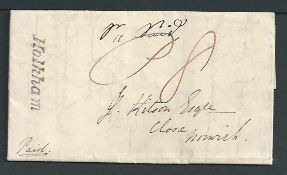 Holkham
Paid
8
J. Kitson Esqre
Close
Norwich.
Paid.